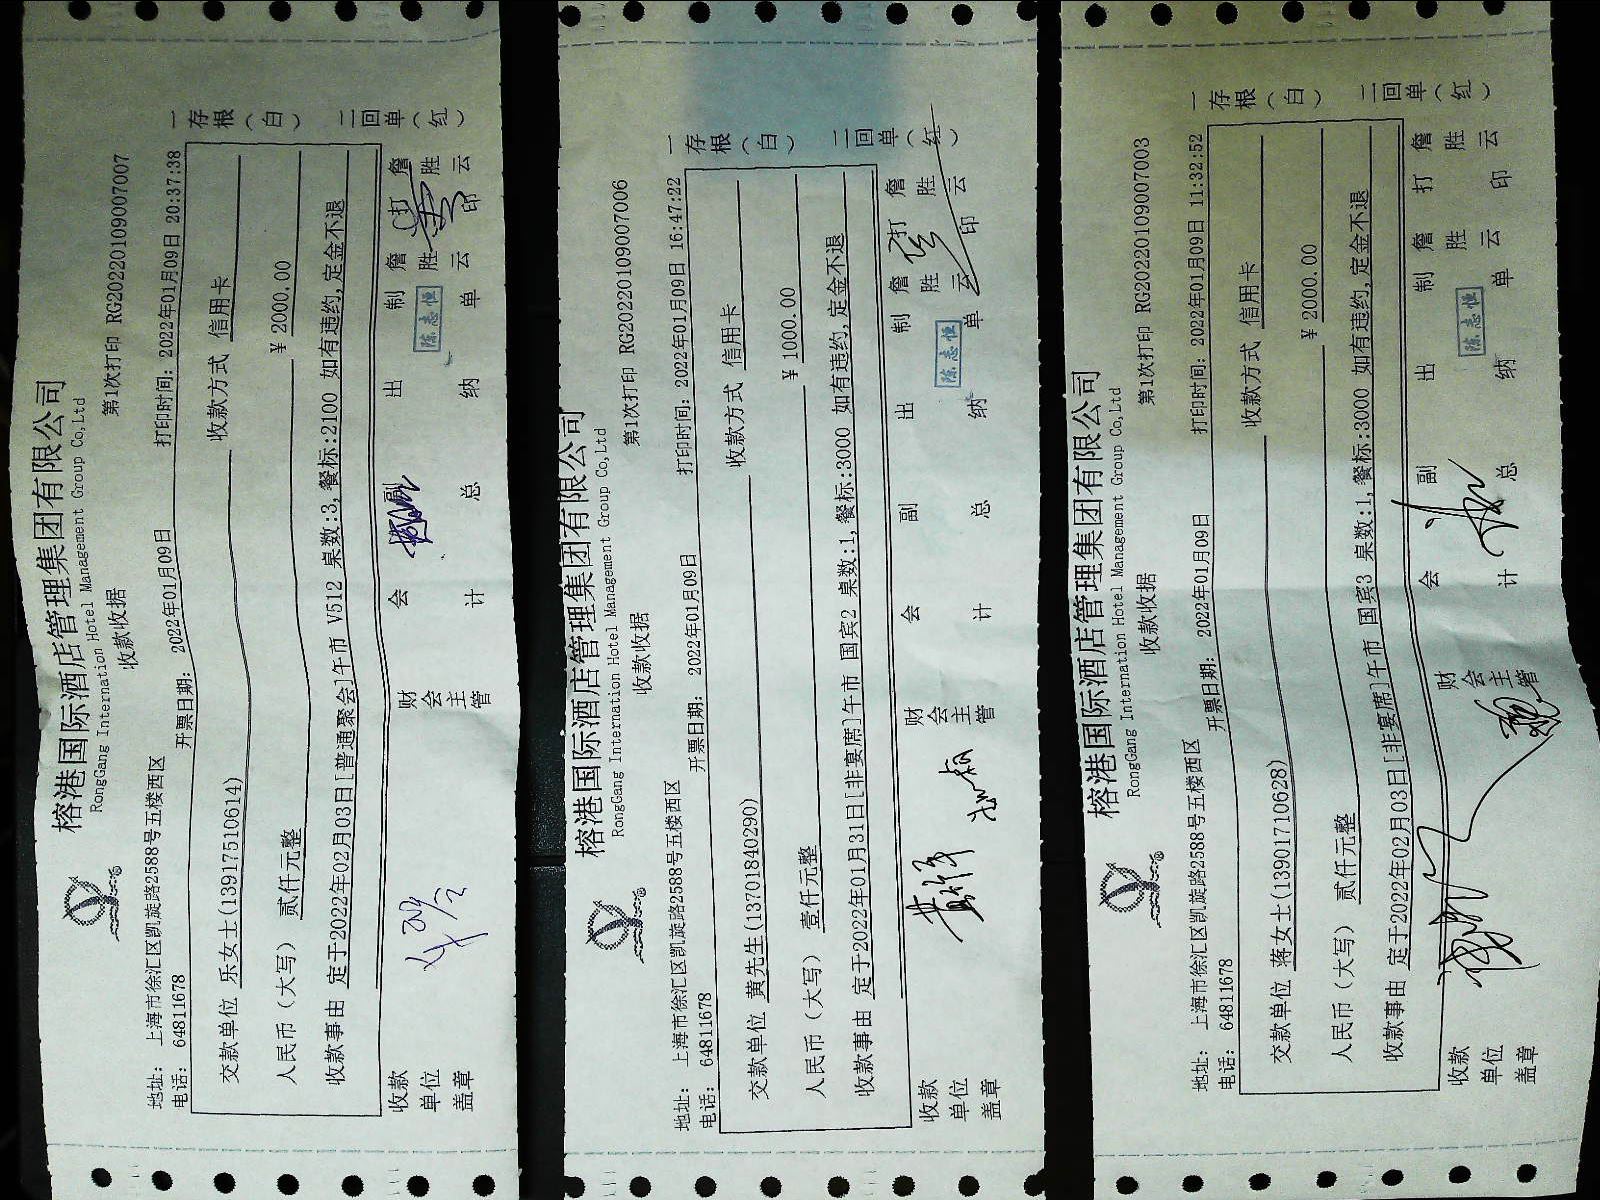 榕港国际酒店管理集团有限公司
RongGang International Hotel Management Group Co,Ltd
收款收据
第1次打印 RG20220109007007
地址: 上海市徐汇区凯旋路2588号五楼西区
电话: 64811678
开票日期: 2022年01月09日
打印时间: 2022年01月09日 20:37:38
交款单位 乐女士(13917510614)
收款方式 信用卡
人民币（大写） 贰仟元整
¥ 2000.00
收款事由 定于2022年02月03日[普通聚会]午市 V512 桌数:3,餐标:2100 如有违约,定金不退
收款单位盖章
财会主管
会计
副总
出纳
陈志恒
制单 詹胜云
打印 詹胜云
一存根（白）
二回单（红）
榕港国际酒店管理集团有限公司
RongGang International Hotel Management Group Co,Ltd
收款收据
第1次打印 RG20220109007006
地址: 上海市徐汇区凯旋路2588号五楼西区
电话: 64811678
开票日期: 2022年01月09日
打印时间: 2022年01月09日 16:47:22
交款单位 黄先生(13701840290)
收款方式 信用卡
人民币（大写） 壹仟元整
¥ 1000.00
收款事由 定于2022年01月31日[非宴席]午市 国宾2 桌数:1,餐标:3000 如有违约,定金不退
收款单位盖章
财会主管
会计
副总
出纳
陈志恒
制单 詹胜云
打印 詹胜云
一存根（白）
二回单（红）
榕港国际酒店管理集团有限公司
RongGang International Hotel Management Group Co,Ltd
收款收据
第1次打印 RG20220109007003
地址: 上海市徐汇区凯旋路2588号五楼西区
电话: 64811678
开票日期: 2022年01月09日
打印时间: 2022年01月09日 11:32:52
交款单位 蒋女士(13901710628)
收款方式 信用卡
人民币（大写） 贰仟元整
¥ 2000.00
收款事由 定于2022年02月03日[非宴席]午市 国宾3 桌数:1,餐标:3000 如有违约,定金不退
收款单位盖章
财会主管
会计
副总
出纳
陈志恒
制单 詹胜云
打印 詹胜云
一存根（白）
二回单（红）